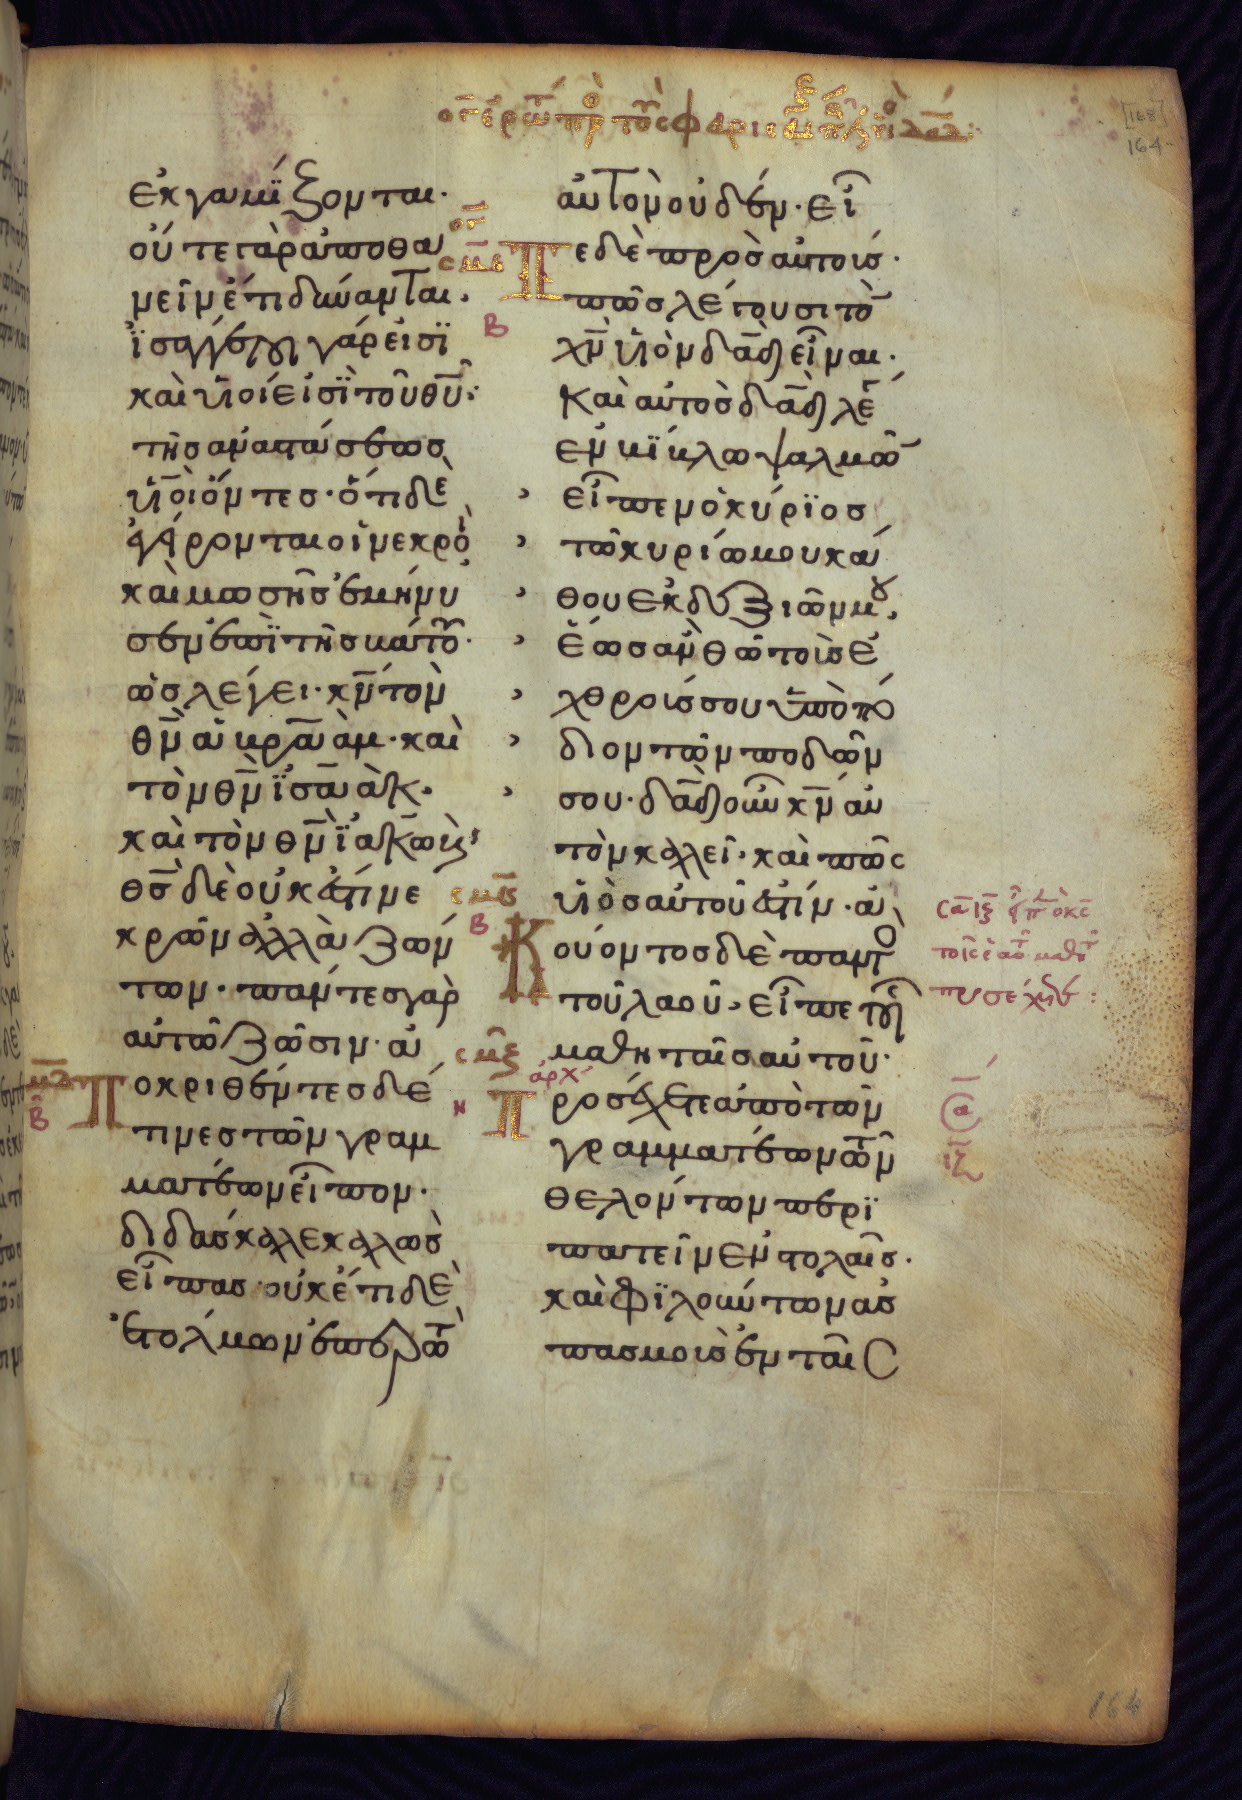 [168]
164
ἐκγαμίζονται·
οὔτε γὰρ ἀποθα
νεῖν ἔτι δύνανται·
ἰσάγγελοι γάρ εἰσι
καὶ υἱοί εἰσι τοῦ θυ̅·
τῆς ἀναστάσεως
υἱοὶ ὄντες· ὅτι δὲ
ἐγείρονται οἱ νεκροὶ
καὶ μωσῆς ἐμήνυ
σεν ἐπὶ τῆς βάτου·
ὡς λέγει· κν̅ τὸν
θν̅ ἀβραὰμ· καὶ
τὸν θν̅ ἰσαὰκ·
καὶ τὸν θν̅ ἰακὼβ·
θς̅ δὲ οὐκ ἔστι νε
κρῶν ἀλλὰ ζών
των· πάντες γὰρ
αὐτῷ ζῶσιν· ἀ
ποκριθέντες δέ
τινες τῶν γραμ
ματέων εἶπον·
διδάσκαλε καλῶς
εἶπας· οὐκέτι δὲ
ἐτόλμων ἐπερωτᾶν
αὐτὸν οὐδέν· εἶ
πε δὲ πρὸς αὐτούς·
πῶς λέγουσι τὸν
χν̅ υἱὸν δα̅δ εἶναι·
καὶ αὐτὸς δα̅δ λέγει
ἐν βίβλω ψαλμῶν
εἶπεν ὁ κύριος
τῶ κυρίω μου κά
θου ἐκ δεξιῶν μου·
ἕως ἂν θῶ τοὺς ἐ
χθρούς σου ὑποπό
διον τῶν ποδῶν
σου· δα̅δ οὖν κν̅ αὐ
τὸν καλεῖ· καὶ πῶς
υἱὸς αὐτοῦ ἐστιν· ἀ
κούοντος δὲ παντὸς
τοῦ λαοῦ, εἶπε τοῖς
μαθηταῖς αὐτοῦ·
ἀρχ
προσέχετε ἀπὸ τῶν
γραμματέων τῶν
θελόντων περι
πατεῖν ἐν στολαῖς·
καὶ φιλούντων ἀσ
πασμοὺς ἐν ταῖς
164